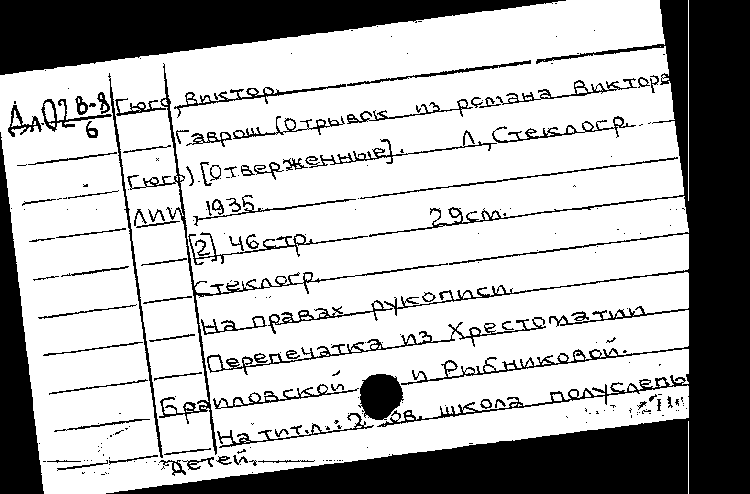 ДлО2 В-8/6
Гюго, Виктор.
Гаврош (Отрывок из романа Виктора
Гюго) [Отверженные]. Л., Стеклогр.
ЛИИ, 1935.
[2], 46 стр. 29 см.
Стеклогр.
На правах рукописи.
Перепечатка из Хрестоматии
Браиловской и Рыбниковой.
На тит.л.: школа полуслепы
детей.